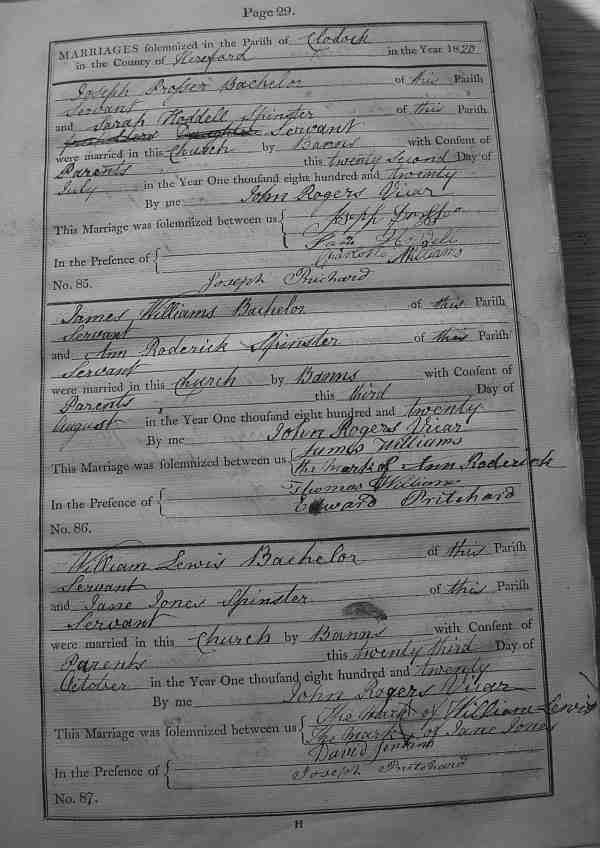 Page 29.
MARRIAGES solemnized in the Parish of Clodock
in the County of Hereford in the Year 1820
Joseph Prosser Bachelor of this Parish
Servant
and Sarah Hoddell Spinster of this Parish
Servant
were married in this Church by Banns with Consent of
Parents this twenty Second Day of
July in the Year One thousand eight hundred and twenty
By me John Rogers Vicar
This Marriage was solemnized between us {
In the Presence of { Charlotte Williams
No. 85. Joseph Prichard
James Williams Bachelor of this Parish
Servant
and Ann Roderick Spinster of this Parish
Servant
were married in this Church by Banns with Consent of
Parents this third Day of
August in the Year One thousand eight hundred and twenty
By me John Rogers Vicar
This Marriage was solemnized between us { James Williams
the mark of Ann Roderick
In the Presence of { Thomas Williams
Edward Pritchard
No. 86.
William Lewis Bachelor of this Parish
Servant
and Jane Jones Spinster of this Parish
Servant
were married in this Church by Banns with Consent of
Parents this twenty third Day of
October in the Year One thousand eight hundred and twenty
By me John Rogers Vicar
This Marriage was solemnized between us { The mark of William Lewis
The mark of Jane Jones
In the Presence of { David Jenkins
Joseph Pritchard
No. 87.
H